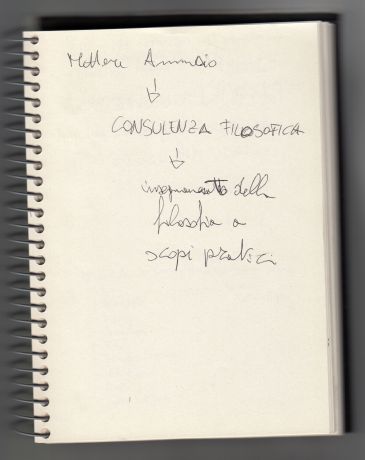 Mettere Annuncio
CONSULENZA FILOSOFICA
insegnamento della
filosofia a
scopi pratici